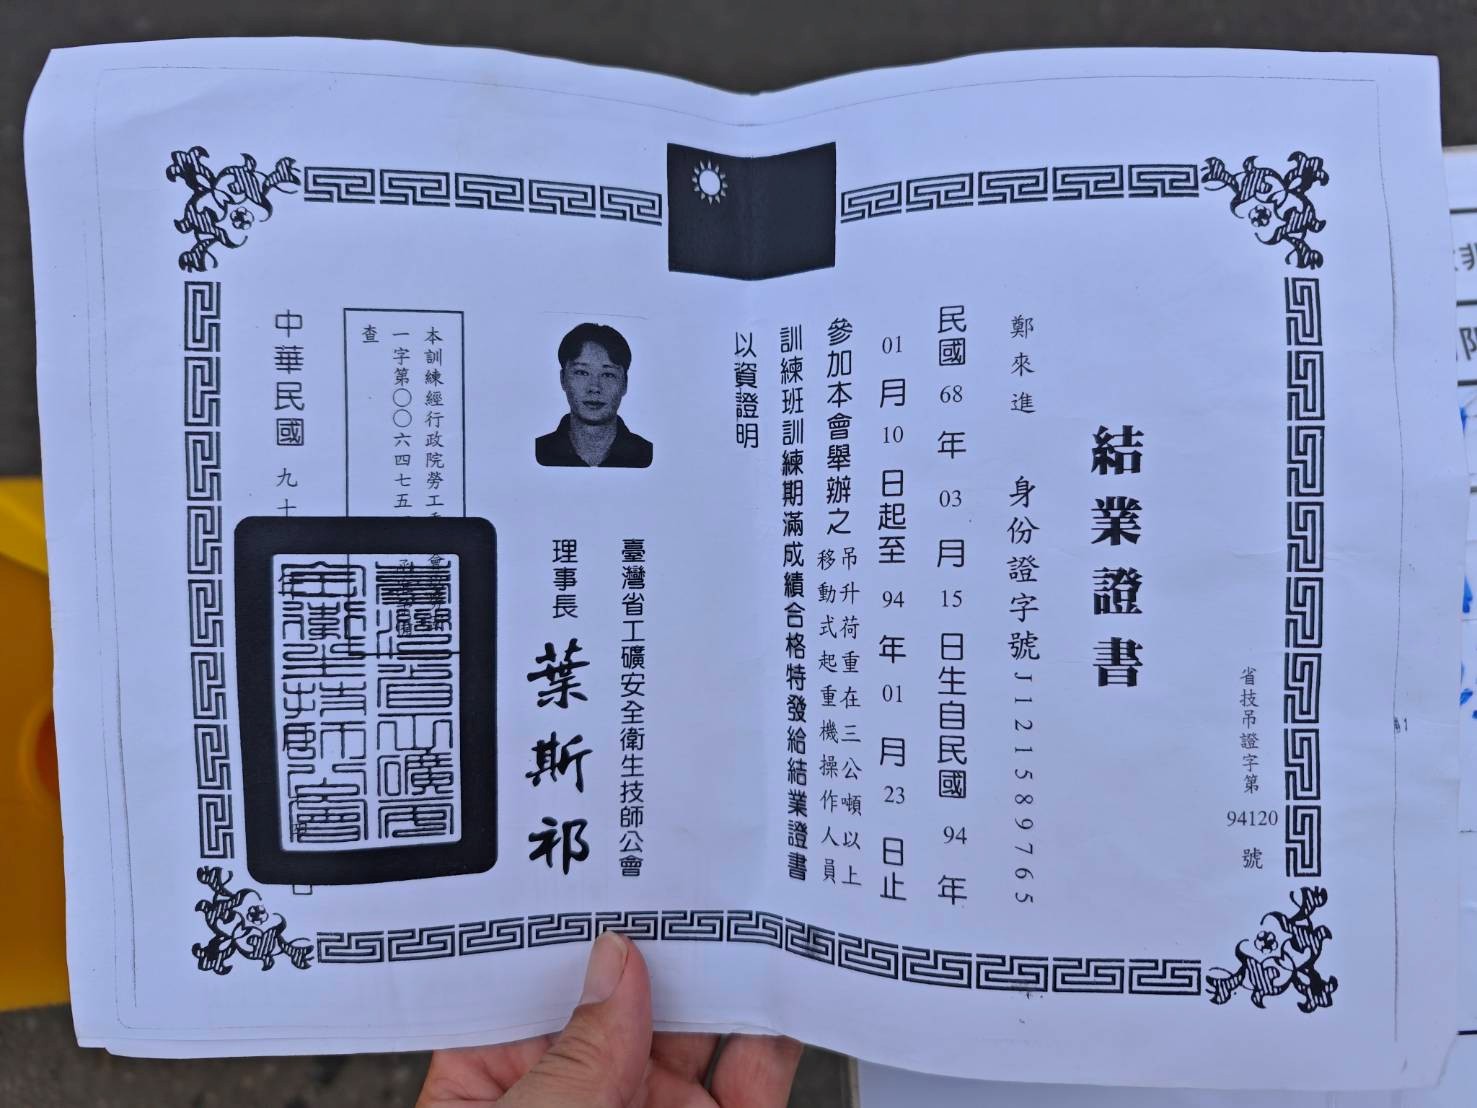 省技吊證字第 94120 號
結業證書
鄭來進 身份證字號 J121589765
民國 68 年 03 月 15 日生自民國 94 年
01 月 10 日起至 94 年 01 月 23 日止
參加本會舉辦之 吊升荷重在三公噸以上
移動式起重機操作人員
訓練班訓練期滿成績合格特發給結業證書
以資證明
臺灣省工礦安全衛生技師公會
理事長 葉斯祁
本訓練經行政院勞工
一字第〇〇六四七五
查
中華民國 九十
臺灣省工礦安
全衛生技師公會